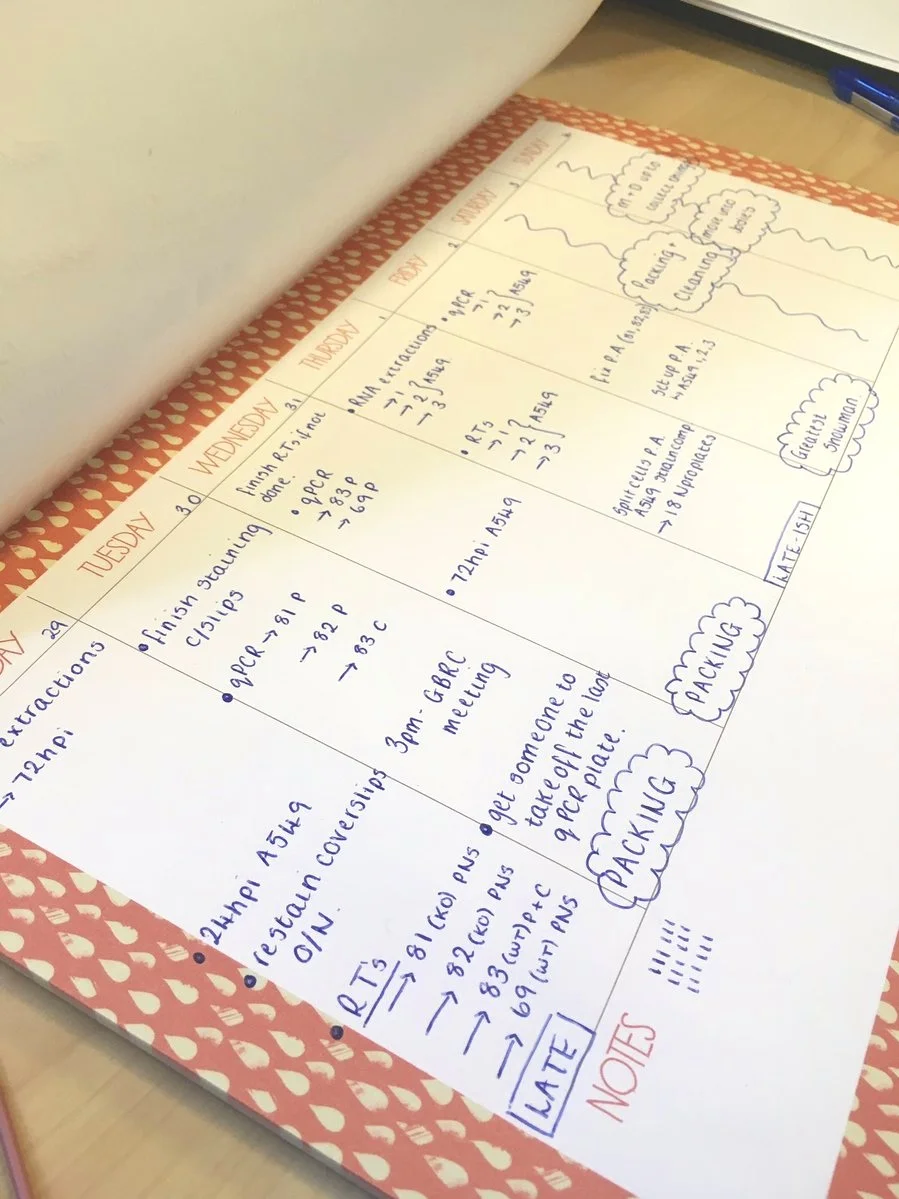 DAY
29
extractions
→ 72hpi
• 24hpi A549
• restain coverslips
O/N.
• RT's
→ 81 (KO) PNs
→ 82 (KO) PNs
→ 83 (WT) P+C
→ 69 (WT) PNs
LATE
TUESDAY
30
• finish staining
c/slips
• qPCR → 81 P
→ 82 P
→ 83 C
3pm - GBRC
meeting
• get someone to
take off the last
qPCR plate.
PACKING
WEDNESDAY
31
finish RTs if not
done.
• qPCR
→ 83 P
→ 69 P
• 72hpi A549
PACKING
THURSDAY
1
• RNA extractions
→ 1
→ 2 } A549
→ 3
• RTs
→ 1
→ 2 } A549
→ 3
Split cells P.A.
A549 strain comp
→ 18 Npro plates
LATE-ISH
FRIDAY
2
• qPCR
→ 1
→ 2 } A549
→ 3
fix P.A
Set up P.A.
↳ A549 1, 2, 3
Greatest
Snowman.
SATURDAY
3
Packing +
Cleaning
SUNDAY
4
M+D up to
collect
move into
NOTES